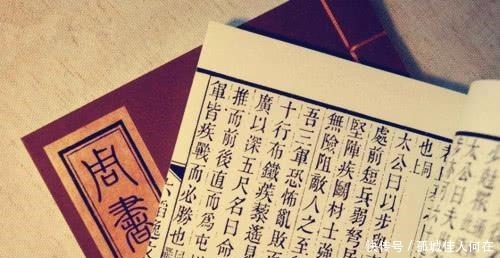 太公曰以步
處前短兵弩居
堅陣疾鬬村士強
無險阻敵人之至
吾三軍恐怖亂敗而
十行布鐵蒺藜遙見
廣以深五尺名曰命
推而前後直而為屯
軍皆疾戰而必勝也
周書
快传号 / 孤城佳人何在